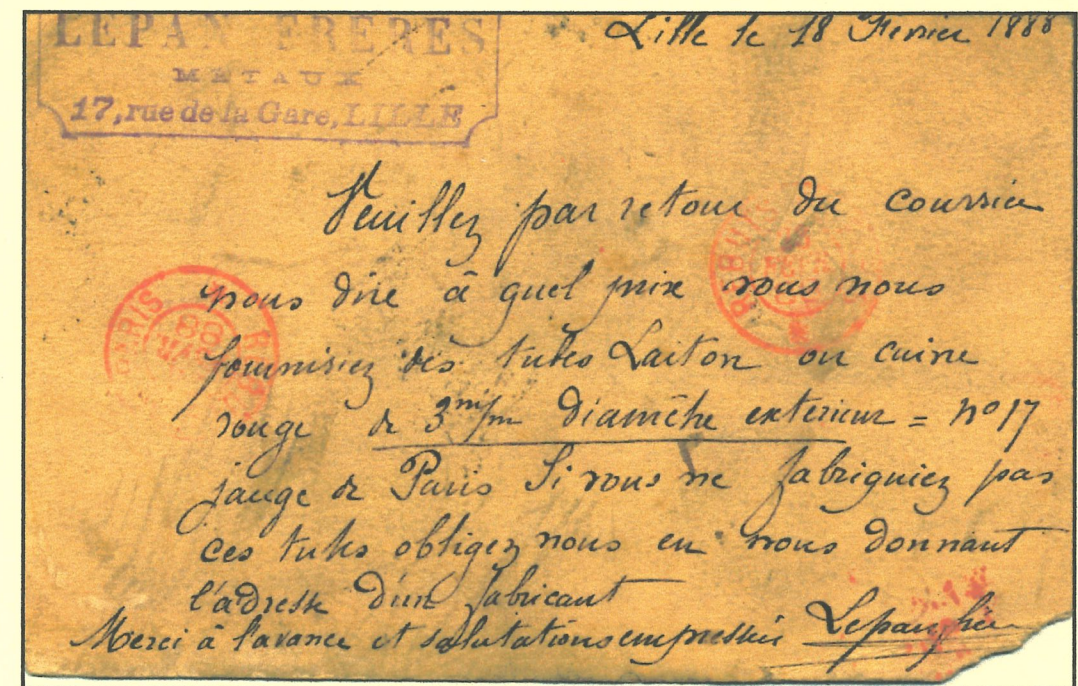 LEPAN FRERES
METAUX
17, rue de la Gare, LILLE
Lille le 18 Fevrier 1888
Veuillez par retour du courrier
nous dire à quel prix vous nous
fourniriez des tubes Laiton ou cuivre
rouge de 3 m/m diamètre exterieur = No 17
jauge de Paris Si vous ne fabriquiez pas
ces tubes obligez nous en nous donnant
l'adresse d'un fabricant
Merci à l'avance et salutations empressées Lepan frères
PARIS
88